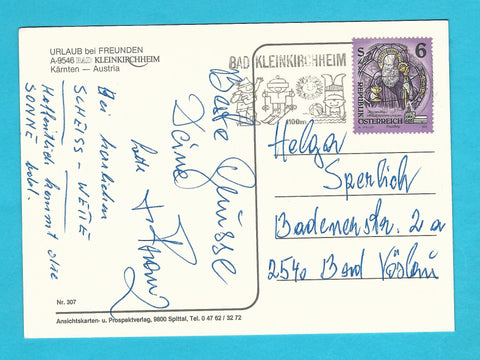 URLAUB bei FREUNDEN
A-9546 BAD KLEINKIRCHHEIM
Kärnten — Austria
Bei herrlichen
SCHEISS-WETTE
Hoffentlich kommt die
SONNE bald.
Beste Grüsse
Deine
BAD KLEINKIRCHHEIM
1100m
6 S
REPUBLIK
ÖSTERREICH
Helger
Sperlich
Badenerstr. 2 a
2540 Bad Vöslau
Nr. 307
Ansichtskarten- u. Prospektverlag, 9800 Spittal, Tel. 0 47 62 / 32 72